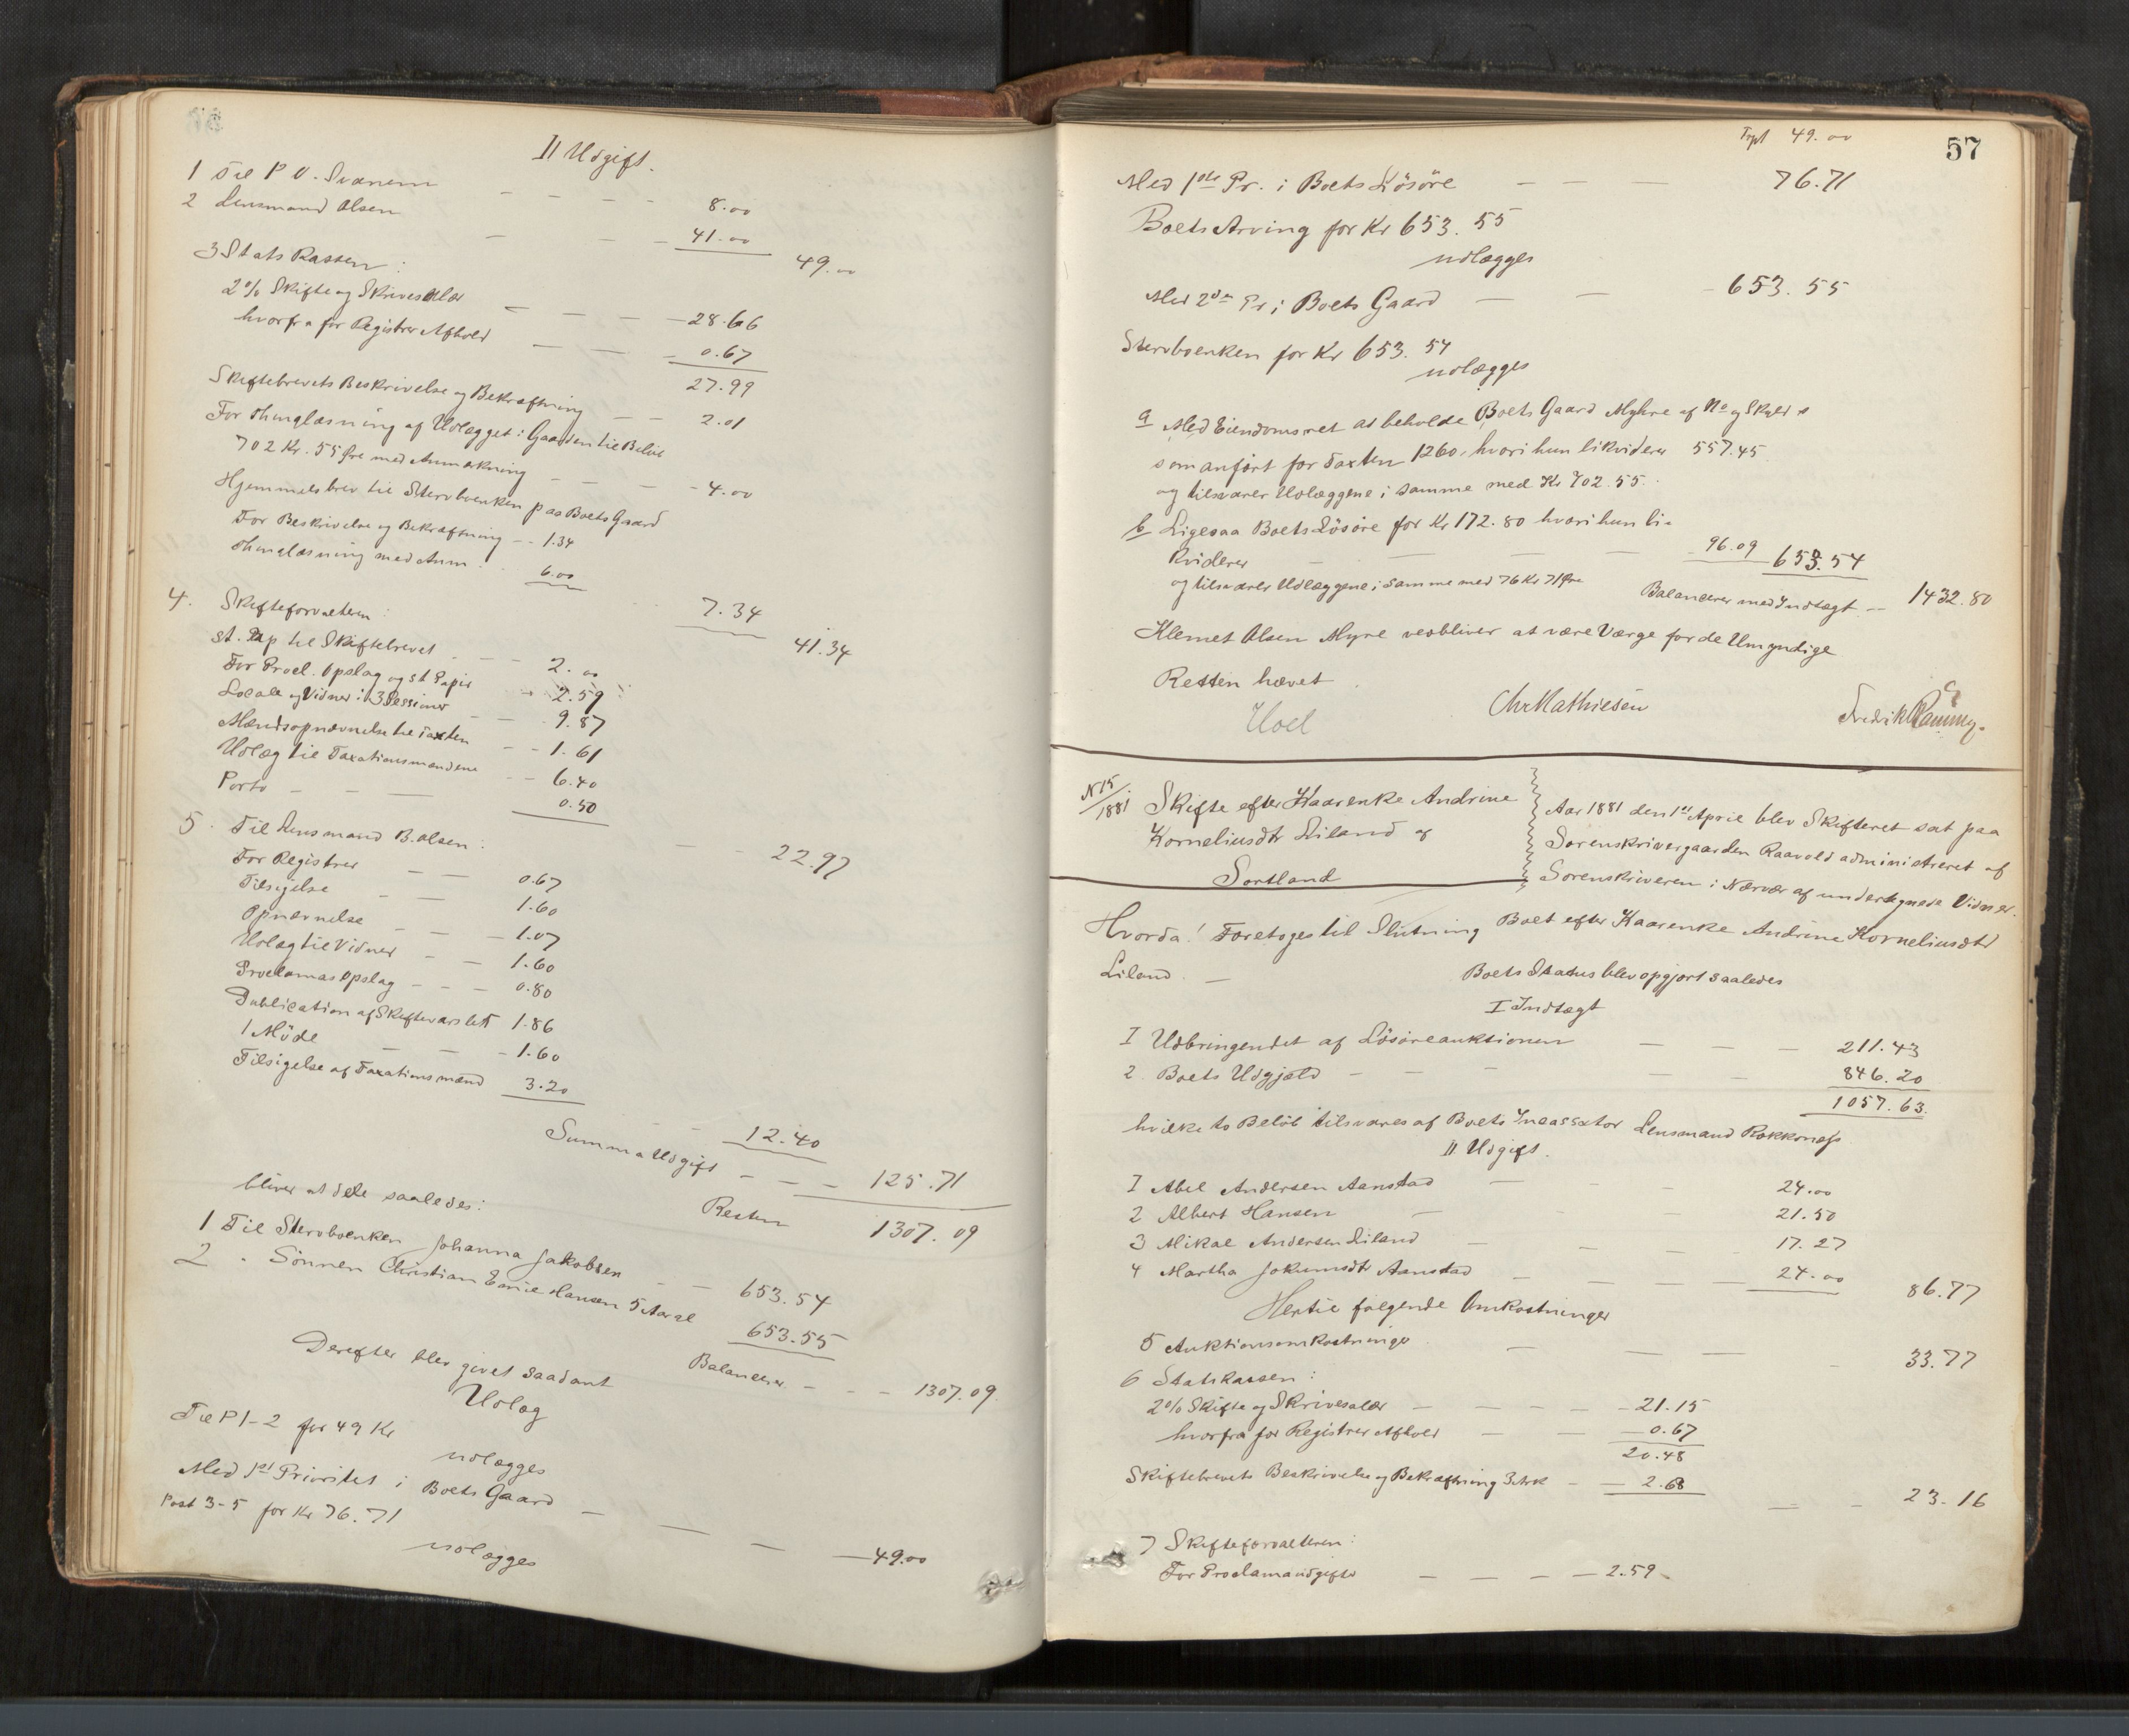 II Udgift.
1 Til P O. Svanem — — — 8.00
2 Lensmand Olsen — — — 41.00
49.00
3 Stats Kassen:
2% Skifte og Skrivesalær — — — 28.66
hvorfra for Registrer Afhold — — — 0.67
27.99
Skiftebrevets Beskrivelse og Bekræftning — — 2.01
For Thinglæsning af Udlægget i Gaarden til Beløb
702 Kr. 55 Øre med Anmærkning — — — 4.00
Hjemmelsbrev til Stervboenken paa Boets Gaard
For Beskrivelse og Bekræftning — 1.34
Thinglæsning med Anm. 6.00
7.34
41.34
4. Skifteforvalteren:
st. Pap til Skiftebrevet — — — 2.00
For Procl. Opslag og st Papir — 2.59
Locale og Vidner i 3 Sessioner — — 9.87
Mændsopnævnelse til Taxten — — 1.61
Udlæg til Taxationsmændene — — 6.40
Porto — — — 0.50
22.97
5. Til Lensmand B. Olsen:
For Registrer — — 0.67
Tilsigelse — — 1.60
Opnævnelse — — 1.07
Udlæg til Vidner — — 1.60
Proclamas Opslag — — — 0.80
Publication af Skiftevarslet 1.86
1 Møde — — — 1.60
Tilsigelse af Taxationsmænd 3.20
12.40
Summa Udgift — — — 125.71
Resten 1307.09
bliver at dele saaledes:
1 Til Stervboenken Johanna Jakobsen — — 653.54
2 - Sønnen Christian Emil Hansen 5 Aar al 653.55
Balancerer — — — 1307.09.
Derefter blev givet saadant
Udlæg
Til P 1-2 for 49 Kr
udlægges
Med 1st Prioritet i Boets Gaard — — — — 49.00
Post 3-5 for Kr 76.71
udlægges
57
Trpt 49.00
Med 1ste Pr. i Boets Løsøre — — — 76.71
Boets Arving for Kr 653.55
udlægges
Med 2den Pr. i Boets Gaard — — — 653.55
Stervboenken for Kr 653.54
udlægges
a Med Eiendomsret at beholde Boets Gaard Myhre af No og Skyld
som anført for Taxten 1260, hvori hun likviderer 557.45
og tilsvarer Udlæggene i samme med Kr 702.55.
b Ligesaa Boets Løsøre for Kr 172.80 hvori hun li-
kviderer — — — — 96.09 653.54
og tilsvarer Udlæggene i samme med 76 Kr 71 Øre
Balancerer med Indtægt — 1432.80
Klemet Olsen Myre vedbliver at være Værge for de Umyndige
Retten hævet.
Hoel Chr Mathiesen Fredrik
N 15/1881 Skifte efter Kaarenke Andrine
Korneliusdtr Liland af
Sortland
Aar 1881 den 1st April blev Skifteret sat paa
Sorenskrivergaarden Raavold administreret af
Sorenskriveren i Nærvær af undertegnede Vidner.
Hvorda! Foretoges til Slutning Boet efter Kaarenke Andrine Korneliusdtr
Liland. —
Boets Status blev opgjort saaledes
I Indtægt
1 Udbringendet af Løsøreauktionen — — — 211.43
2 Boets Udgjæld — — — — — 846.20
1057.63.
hvilke to Beløb tilsvares af Boets Incassator Lensmand Rokkones.
II Udgift.
1 Abel Andersen Aanstad — — — 24.00
2 Albert Hansen — — — 21.50
3 Mikal Andersen Liland — — — 17.27
4 Martha Jokumsdtr Aanstad — — — — 24.00
86.77
Hertil følgende Omkostninger
5 Auktionsomkostninger — — — — 33.77
6 Statskassen:
2% Skifte og Skrivesalær — — — — 21.15
hvorfra for Registrer Afhold — — — 0.67
20.48
Skiftebrevets Beskrivelse og Bekræftning 3 Ark — — 2.68
— — 23.16
7 Skifteforvalteren:
For Proclamaudgifter — — — — 2.59